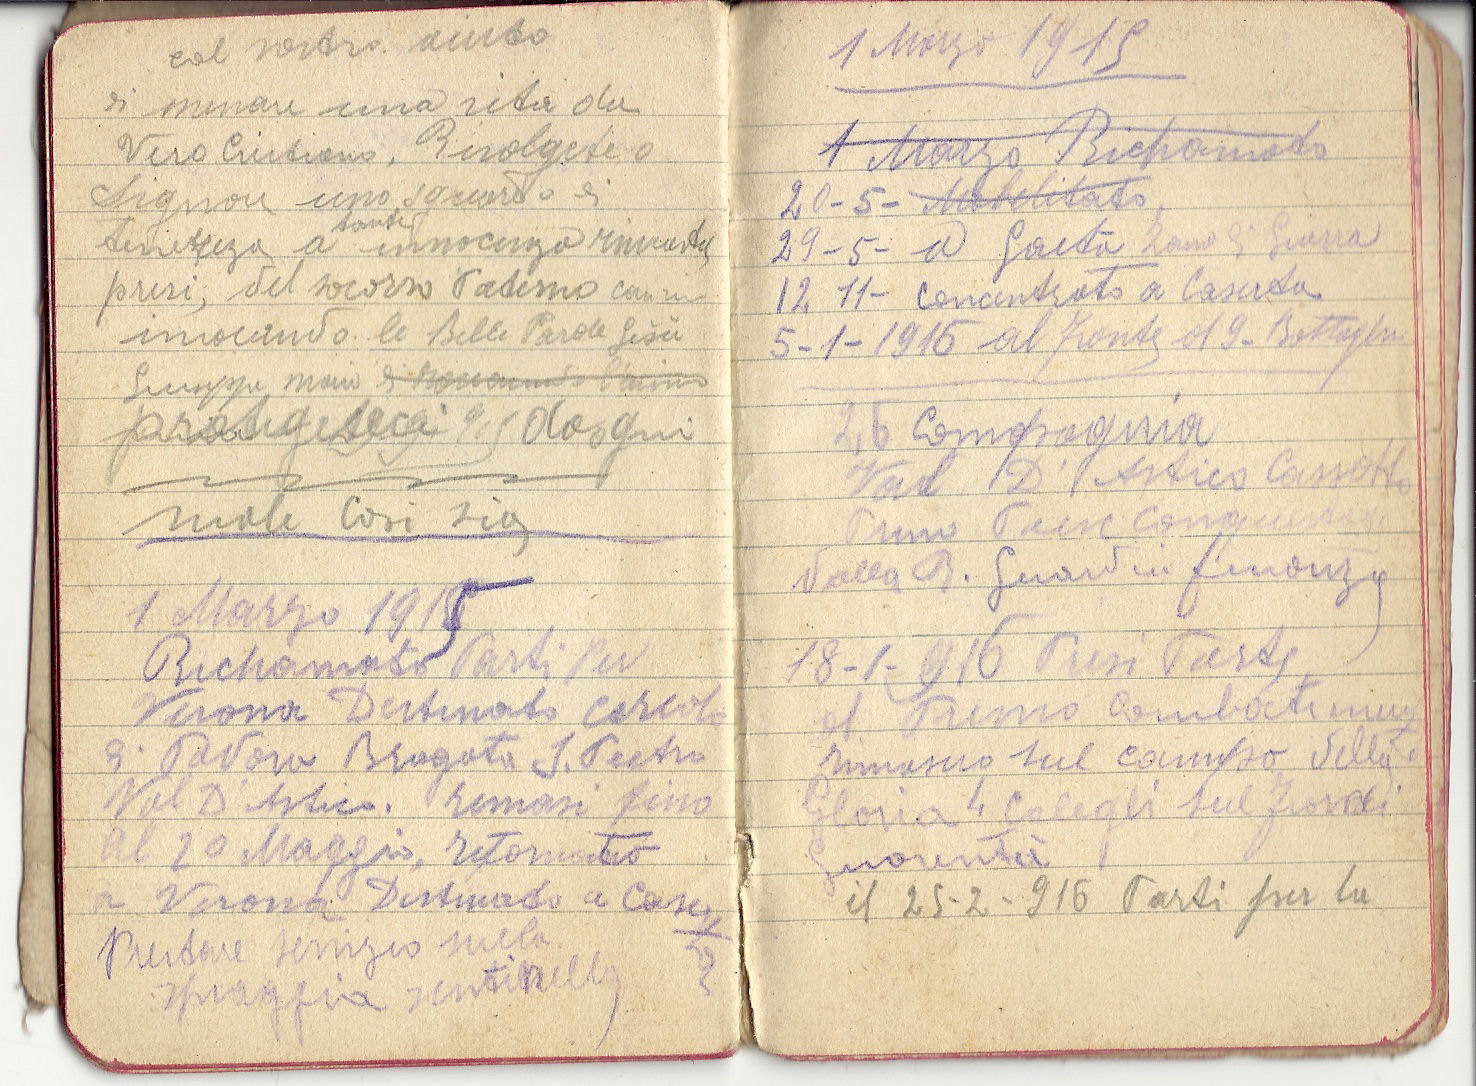 col vostro aiuto
di menare una vita da
Vero Cristiano, Rivolgete o
Signore uno sguardo di
tenerezza a tante innocenza rimasta
privi, del socorso Paterno
invocando le Belle Parole Gesù
Giuseppe Maria e
protegeteci da ogni
male Cosi sia
1 Marzo 1915
Richamato Parti Per
Verona Destinato Corcolo
di Padova Bragata S. Pietro
Val D'Astico. Remasi fino
al 20 Maggio, retornato
a Verona Destinato a Caserta
Prestare servizio sulla
spiaggia sentinella
1 Marzo 1915
1 Marzo Richamato
20-5- Mobilitato
29-5- a Gaeta Zona di Guerra
12 11- Concentrato a Caserta
5-1-1916 al fronte al 9- Bottaglin
26 Compagnia
Val D'Astico Cassotto
Primo Paese Conquistato
dalla R. Guardia finanza
18-1-916 Presi Parte
al Primo Combatimento
rimasero sul campo della
Gloria 4 Colegli sul
il 25-2-916 Parti per la